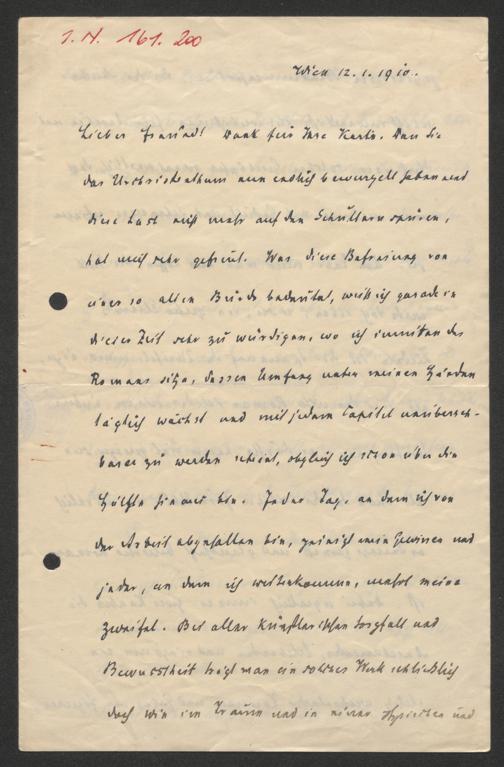 I.N. 161.200
Wien 12.1.1910.
Lieber Freund! Dank für Ihre Karte. Dass Sie
das Urchristenthum nun endlich bewurzelt haben und
diese Last nicht mehr auf den Schultern spüren,
hat mich sehr gefreut. Was diese Befreiung von
einer so alten Bürde bedeutet, weiß ich gerade in
dieser Zeit sehr zu würdigen, wo ich inmitten des
Romans sitze, dessen Umfang unter meinen Händen
täglich wächst und mit jedem Capitel unüberseh-
barer zu werden scheint, obgleich ich schon über die
Hälfte hinaus bin. Jeder Tag, an dem ich von
der Arbeit abgehalten bin, peinigt mein Gewissen und
jeder, an dem ich weiterkomme, mehrt meine
Zweifel. Bei aller künstlerischen Sorgfalt und
Bewusstheit trägt man ein solches Werk schließlich
doch wie im Traum und in einer Hypnose und